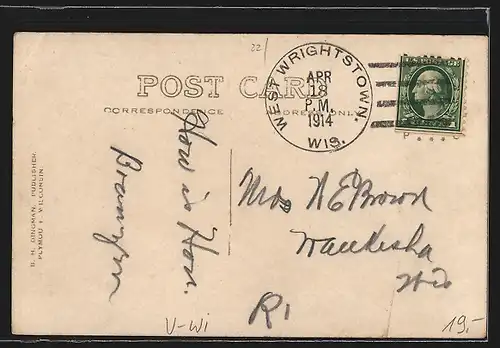 22
POST CARD
CORRESPONDENCE
ADDRESS ONLY
WEST WRIGHTSTOWN.
APR
18
P.M.
1914
WIS.
How is Hon.
B. H. DINGMAN, PUBLISHER,
PLYMOUTH, WISCONSIN.
N E Brown
Waukesha
Wis
R1
V-Wi
19.-